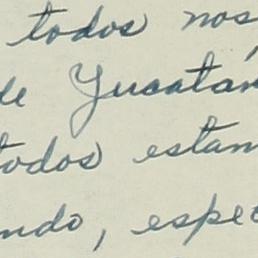 todos nos
de Yucatán
todos estam
ndo, espec